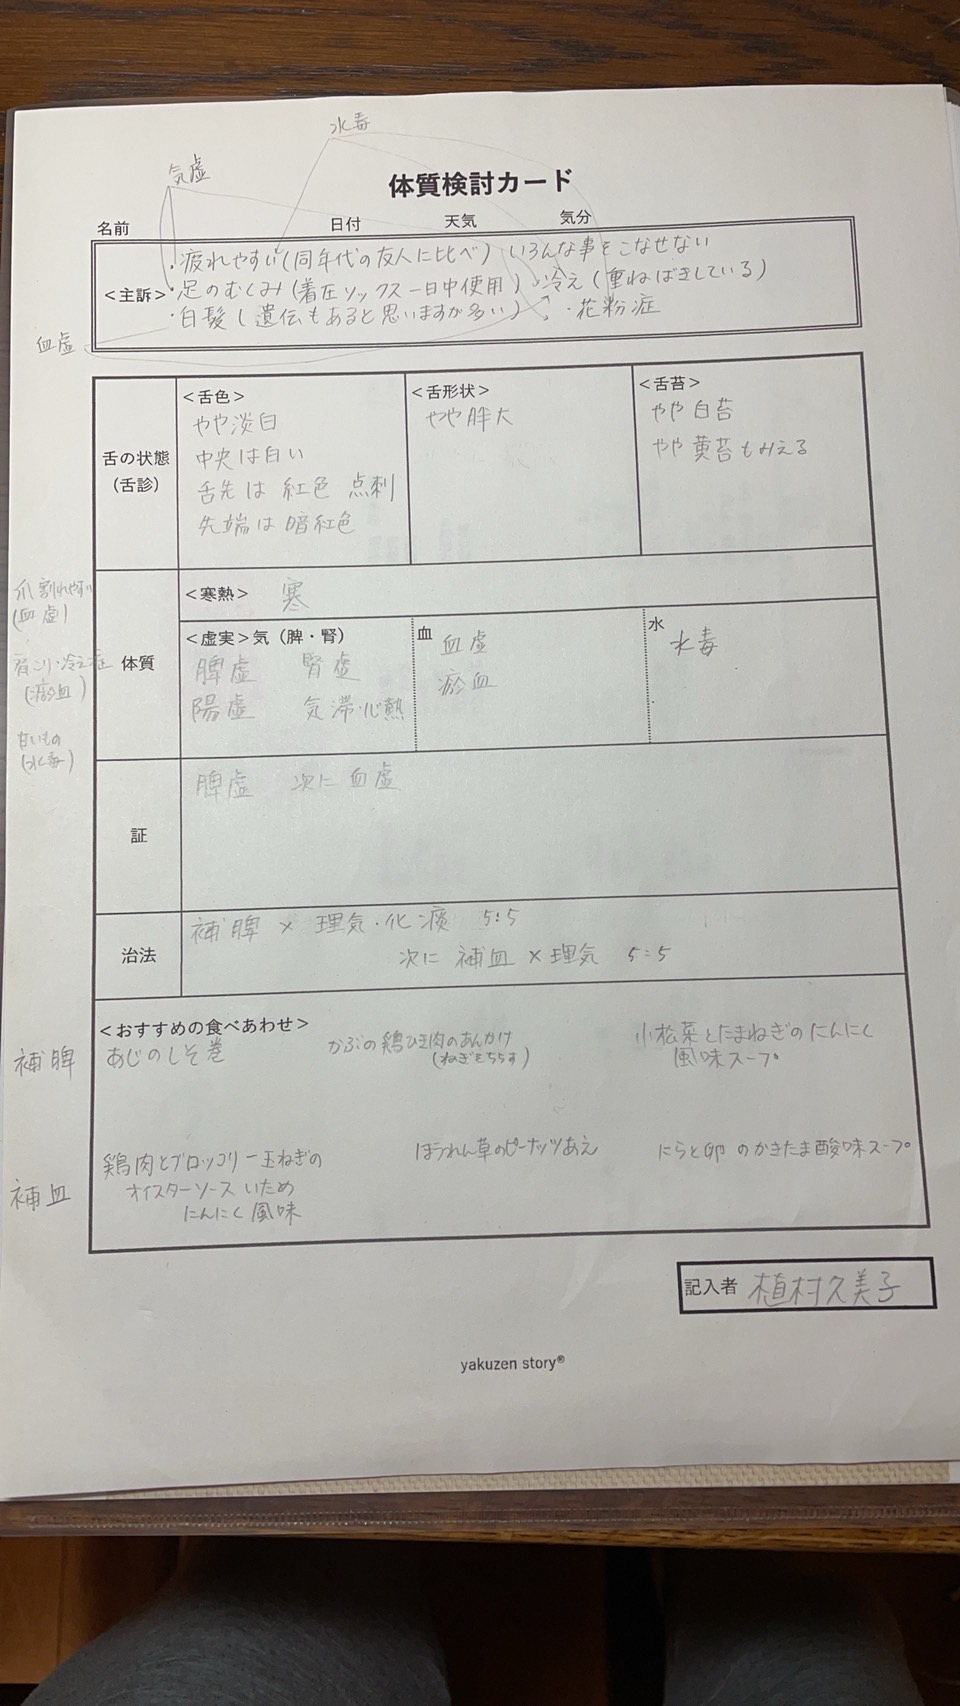 水毒
気虚
体質検討カード
名前 日付 天気 気分
・疲れやすい(同年代の友人に比べ) いろんな事をこなせない
<主訴>・足のむくみ(着圧ソックス一日中使用)・冷え(重ねばきしている)
・白髪(遺伝もあると思いますが多い) ・花粉症
血虚
舌の状態
(舌診)
<舌色>
やや淡白
中央は白い
舌先は 紅色 点刺
先端は暗紅色
<舌形状>
やや胖大
<舌苔>
やや白苔
やや黄苔もみえる
爪割れやすい
(血虚)
肩こり・冷え症
(瘀血)
甘いもの
(水毒)
体質
<寒熱> 寒
<虚実>気(脾・腎)
脾虚 腎虚
陽虚 気滞・心熱
血 血虚
瘀血
水 水毒
証
脾虚 次に血虚
治法
補脾 × 理気・化痰 5:5
次に 補血 × 理気 5:5
<おすすめの食べあわせ>
補脾
あじのしそ巻
かぶの鶏ひき肉のあんかけ
(ねぎをちらす)
小松菜とたまねぎのにんにく
風味スープ
補血
鶏肉とブロッコリー玉ねぎの
オイスターソースいため
にんにく風味
ほうれん草のピーナッツあえ
にらと卵のかきたま酸味スープ
記入者 植村久美子
yakuzen story®